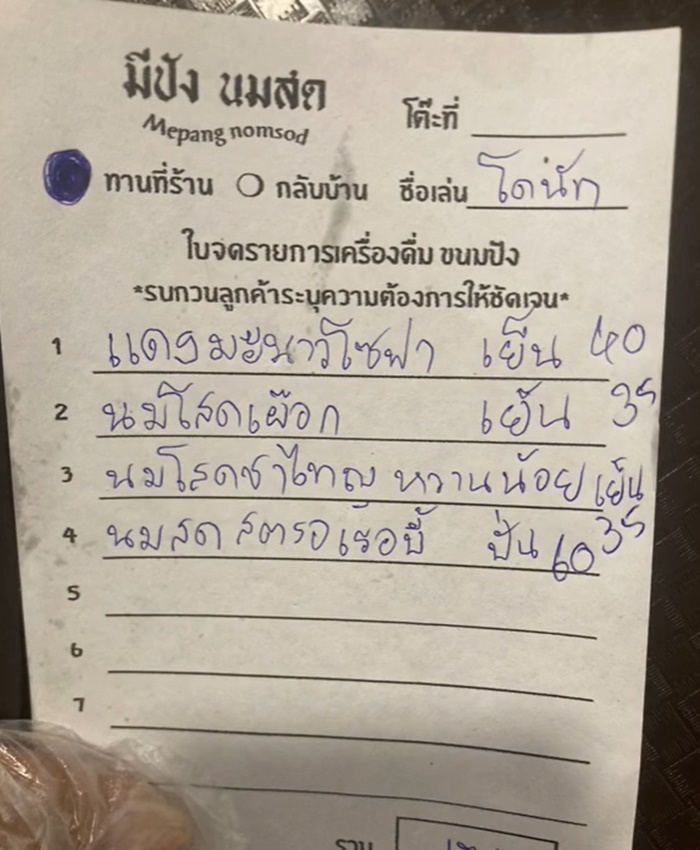 มีปัง นมสด
Mepang nomsod
โต๊ะที่
ทานที่ร้าน กลับบ้าน ชื่อเล่น โดนัท
ใบจดรายการเครื่องดื่ม ขนมปัง
*รบกวนลูกค้าระบุความต้องการให้ชัดเจน*
1 แดงมะนาวโซฟา เย็น 40
2 นมโสดเผือก เย็น 35
3 นมโสดชาไทญ หวานน้อย เย็น 35
4 นมสด สตรอเร้อบี้ ปั่น 60
5
6
7
รวม